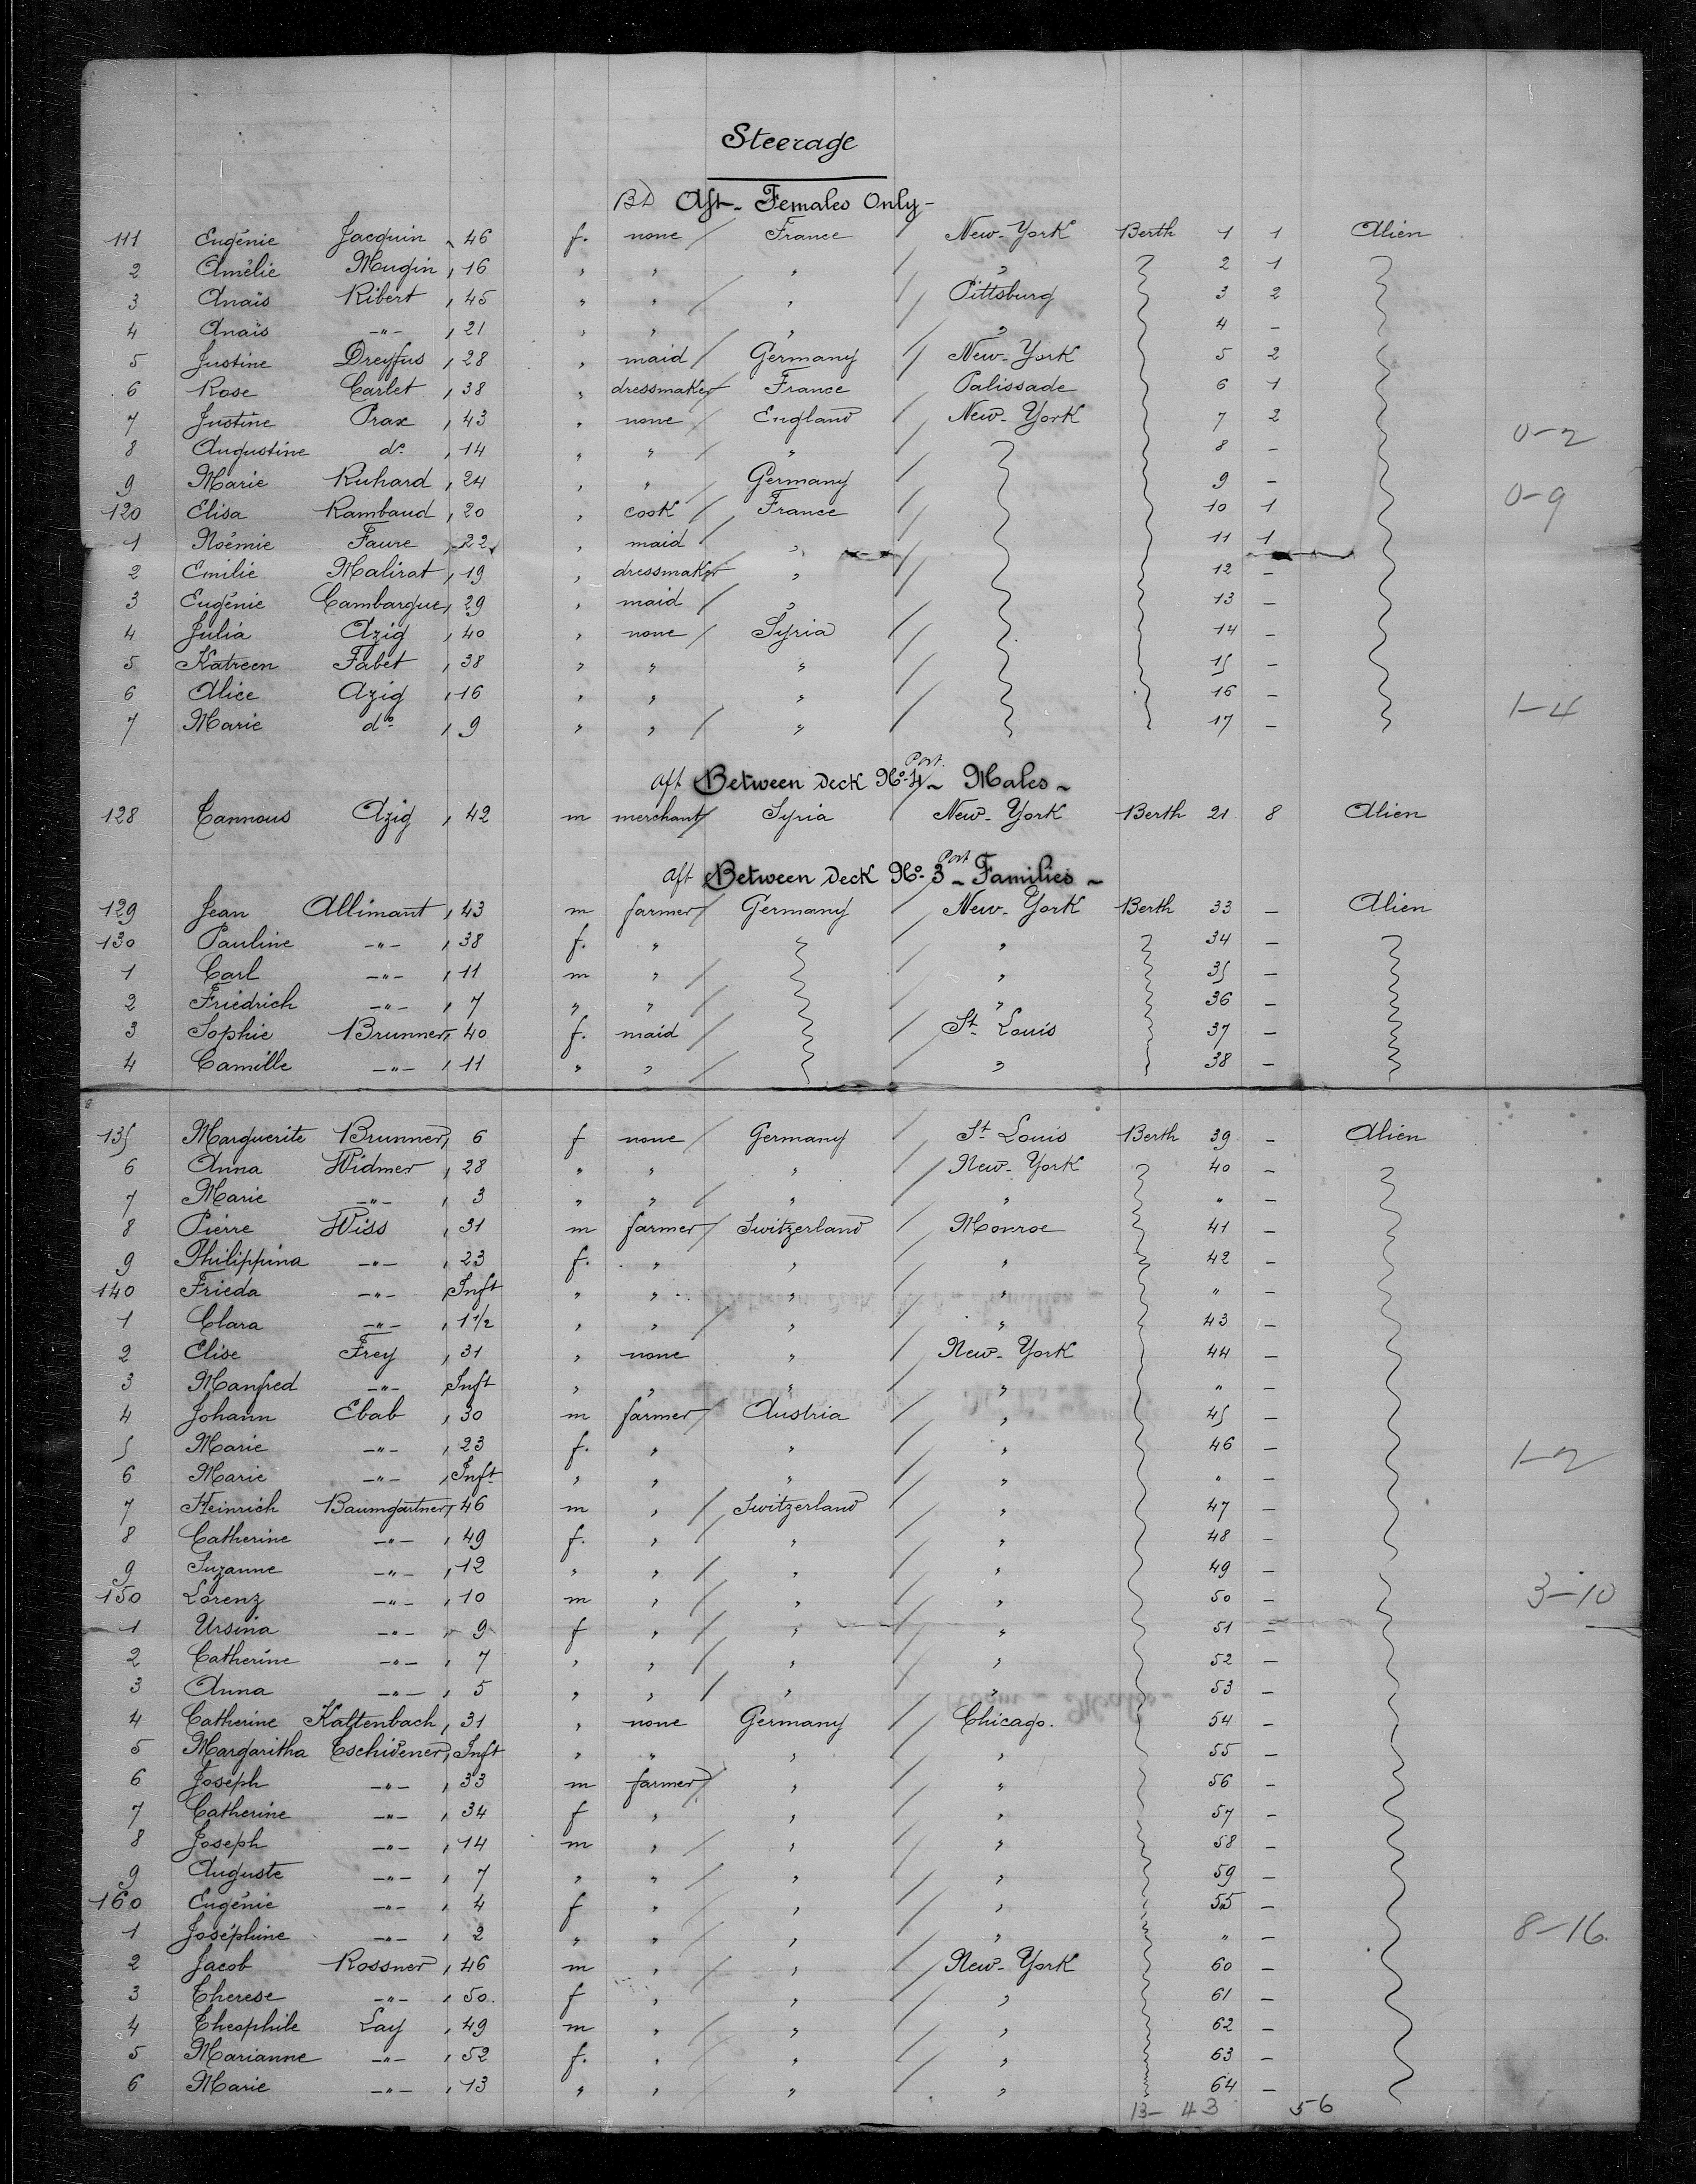 Steerage
BD Aft - Females Only -
111 Eugénie Jacquin 46 f. none France New-York Berth 1 1 Alien
2 Amélie Mugin 16 " " " " 2 1
3 Anaïs Ribert 45 " " " Pittsburg 3 2
4 Anaïs -"- 21 " " " " 4 -
5 Justine Dreyfus 28 " maid Germany New-York 5 2
6 Rose Carlet 38 " dressmaker France Palissade 6 1
7 Justine Prax 43 " none England New-York 7 2
0-2
8 Augustine do 14 " " " 8 -
9 Marie Ruhard 24 " " Germany 9 -
0-9
120 Elisa Rambaud 20 " cook France 10 1
1 Noémie Faure 22 " maid " 11 1
2 Emilie Malirat 19 " dressmaker " 12 -
3 Eugénie Cambargue 29 " maid " 13 -
4 Julia Azig 40 " none Syria 14 -
5 Katreen Fabet 38 " " " 15 -
6 Alice Azig 16 " " " 16 - 1-4
7 Marie do 9 " " " 17 -
Port
aft Between Deck No 4 - Males -
128 Cannous Azig 42 m merchant Syria New-York Berth 21 8 Alien
Port
aft Between Deck No 3 - Families -
129 Jean Allimant 43 m farmer Germany New-York Berth 33 - Alien
130 Pauline -"- 38 f. " " 34 -
1 Carl -"- 11 m " " 35 -
2 Friedrich -"- 7 " " " 36 -
3 Sophie Brunner 40 f. maid St Louis 37 -
4 Camille -"- 11 " " " 38 -
135 Marguerite Brunner 6 f none Germany St Louis Berth 39 - Alien
6 Anna Widmer 28 " " " New-York 40 -
7 Marie -"- 3 " " " " " -
8 Pierre Wiss 31 m farmer Switzerland Monroe 41 -
9 Philippina -"- 23 f. " " " 42 -
140 Frieda -"- Inft " " " " " -
1 Clara -"- 1 1/2 " " " " 43 -
2 Elise Frey 31 " none " New-York 44 -
3 Manfred -"- Inft " " " " " -
4 Johann Ebab 30 m farmer Austria " 45 -
5 Marie -"- 23 f. " " " 46 - 1-2
6 Marie -"- Inft " " " " " -
7 Heinrich Baumgartner 46 m " Switzerland " 47 -
8 Catherine -"- 49 f. " " " 48 -
9 Suzanne -"- 12 " " " " 49 -
150 Lorenz -"- 10 m " " " 50 - 3-10
1 Ursina -"- 9 f " " " 51 -
2 Catherine -"- 7 " " " " 52 -
3 Anna -"- 5 " " " " 53 -
4 Catherine Kaltenbach 31 " none Germany Chicago. 54 -
5 Margaritha Tschidener Inft " " " " 55 -
6 Joseph -"- 33 m farmer " " 56 -
7 Catherine -"- 34 f " " " 57 -
8 Joseph -"- 14 m " " " 58 -
9 Auguste -"- 7 " " " " 59 -
160 Eugénie -"- 4 f " " " 55 -
1 Joséphine -"- 2 " " " " " - 8-16
2 Jacob Rossner 46 m " " New-York 60 -
3 Therese -"- 50. f " " " 61 -
4 Theophile Lay 49 m " " " 62 -
5 Marianne -"- 52 f. " " " 63 -
6 Marie -"- 13 " " " " 64 -
13- 43 56